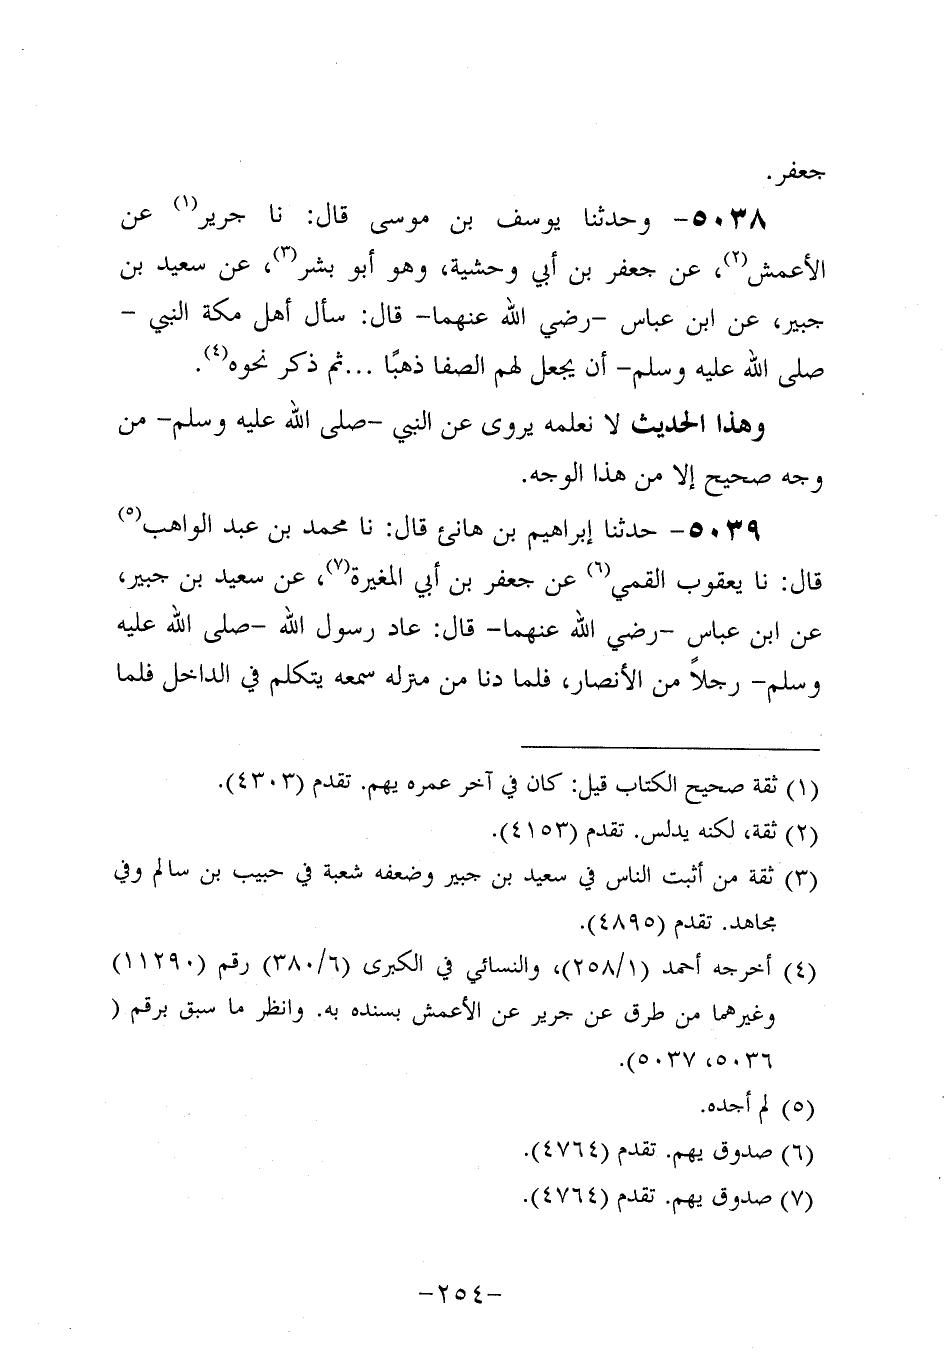 جعفر.
٥٠٣٨- وحدثنا يوسف بن موسى قال: نا جرير(١) عن
الأعمش(٢)، عن جعفر بن أبي وحشية، وهو أبو بشر(٣)، عن سعيد بن
جبير، عن ابن عباس -رضي الله عنهما- قال: سأل أهل مكة النبي -
صلى الله عليه وسلم- أن يجعل لهم الصفا ذهبًا ...ثم ذكر نحوه(٤).
وهذا الحديث لا نعلمه يروى عن النبي -صلى الله عليه وسلم- من
وجه صحيح إلا من هذا الوجه.
٥٠٣٩- حدثنا إبراهيم بن هانئ قال: نا محمد بن عبد الواهب(٥)
قال: نا يعقوب القمي(٦) عن جعفر بن أبي المغيرة(٧)، عن سعيد بن جبير،
عن ابن عباس -رضي الله عنهما- قال: عاد رسول الله -صلى الله عليه
وسلم- رجلاً من الأنصار، فلما دنا من منزله سمعه يتكلم في الداخل فلما
(١) ثقة صحيح الكتاب قيل: كان في آخر عمره يهم. تقدم (٤٣٠٣).
(٢) ثقة، لكنه يدلس. تقدم (٤١٥٣).
(٣) ثقة من أثبت الناس في سعيد بن جبير وضعفه شعبة في حبيب بن سالم وفي
مجاهد. تقدم (٤٨٩٥).
(٤) أخرجه أحمد (٢٥٨/١)، والنسائي في الكبرى (٣٨٠/٦) رقم (١١٢٩٠)
وغيرهما من طرق عن جرير عن الأعمش بسنده به. وانظر ما سبق برقم (
٥٠٣٦، ٥٠٣٧).
(٥) لم أجده.
(٦) صدوق يهم. تقدم (٤٧٦٤).
(٧) صدوق يهم. تقدم (٤٧٦٤).
-٢٥٤-